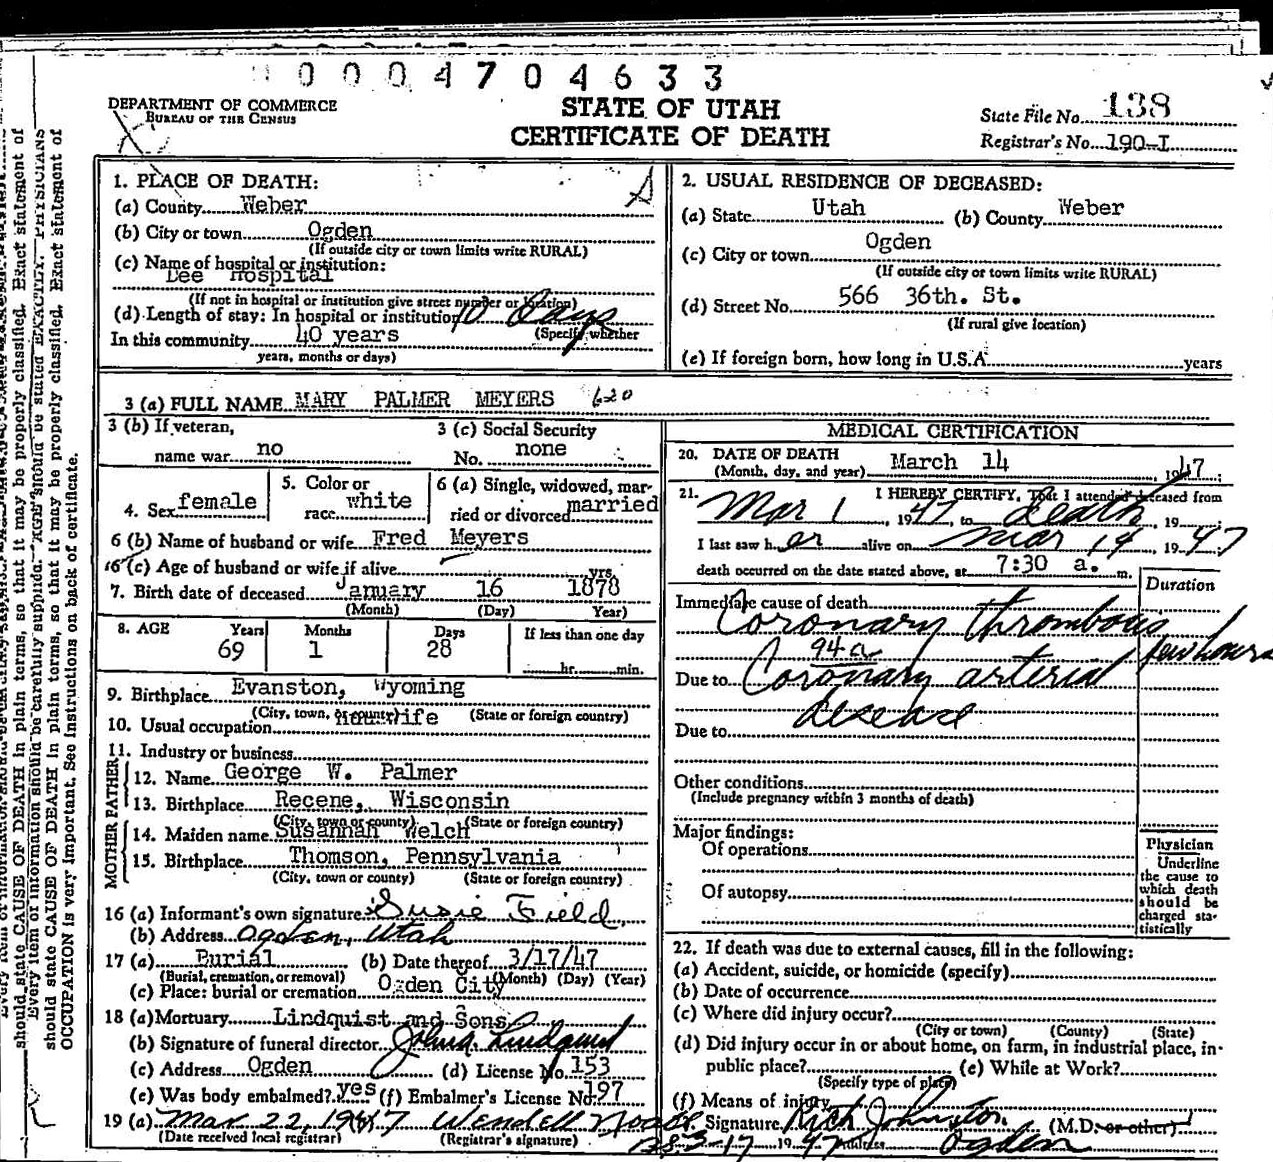 0004704633
DEPARTMENT OF COMMERCE
BUREAU OF THE CENSUS
STATE OF UTAH
CERTIFICATE OF DEATH
State File No. 138
Registrar's No. 190-I
1. PLACE OF DEATH:
(a) County Weber
(b) City or town Ogden
(If outside city or town limits write RURAL)
(c) Name of hospital or institution:
Dee Hospital
(If not in hospital or institution give street number or location)
(d) Length of stay: In hospital or institution 10 Days
(Specify whether
In this community 40 years
years, months or days)
2. USUAL RESIDENCE OF DECEASED:
(a) State Utah (b) County Weber
(c) City or town Ogden
(If outside city or town limits write RURAL)
(d) Street No. 566 36th. St.
(If rural give location)
(e) If foreign born, how long in U.S.A. years
3 (a) FULL NAME MARY PALMER MEYERS 620
3 (b) If veteran,
name war no
3 (c) Social Security
No. none
4. Sex female
5. Color or
race white
6 (a) Single, widowed, mar-
ried or divorced married
6 (b) Name of husband or wife Fred Meyers
6 (c) Age of husband or wife if alive yrs.
7. Birth date of deceased January 16 1878
(Month) (Day) Year)
8. AGE Years Months Days If less than one day
69 1 28 hr. min.
9. Birthplace Evanston, Wyoming
(City, town, or county) (State or foreign country)
10. Usual occupation Housewife
11. Industry or business
FATHER
12. Name George W. Palmer
13. Birthplace Recene, Wisconsin
(City, town or county) (State or foreign country)
MOTHER
14. Maiden name Susannah Welch
15. Birthplace Thomson, Pennsylvania
(City, town or county) (State or foreign country)
16 (a) Informant's own signature Susie Field
(b) Address Ogden, Utah
17 (a) Burial (b) Date thereof 3/17/47
(Burial, cremation, or removal) (Month) (Day) (Year)
(c) Place: burial or cremation Ogden City
18 (a) Mortuary Lindquist and Sons
(b) Signature of funeral director John A. Lindquist
(c) Address Ogden (d) License No. 153
(e) Was body embalmed? yes (f) Embalmer's License No. 197
19 (a) Mar 22, 1947 Wendell
(Date received local registrar) (Registrar's signature)
MEDICAL CERTIFICATION
20. DATE OF DEATH
(Month, day, and year) March 14 1947
21. I HEREBY CERTIFY, That I attended deceased from
Mar 1, 1947, to death, 19
I last saw her alive on Mar 14 1947
death occurred on the date stated above, at 7:30 a. m.
Duration
Immediate cause of death
Coronary thrombosis few hours
94a
Due to Coronary arterial
disease
Due to
Other conditions
(Include pregnancy within 3 months of death)
Major findings:
Of operations
Of autopsy
Physician
Underline
the cause to
which death
should be
charged sta-
tistically
22. If death was due to external causes, fill in the following:
(a) Accident, suicide, or homicide (specify)
(b) Date of occurrence
(c) Where did injury occur?
(City or town) (County) (State)
(d) Did injury occur in or about home, on farm, in industrial place, in-
public place? (e) While at Work?
(Specify type of place)
(f) Means of injury
Signature Rich Johnston (M.D. or other)
3-17 1947 Address Ogden
should state CAUSE OF DEATH in plain terms, so that it may be properly classified. Exact statement of
Every item of information should be carefully supplied. AGE should be stated EXACTLY. PHYSICIANS
should state CAUSE OF DEATH in plain terms, so that it may be properly classified. Exact statement of
OCCUPATION is very important. See instructions on back of certificate.